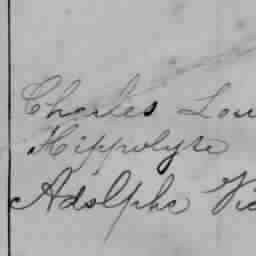 Charles Lou
Hippolyte
Adolphe Vic